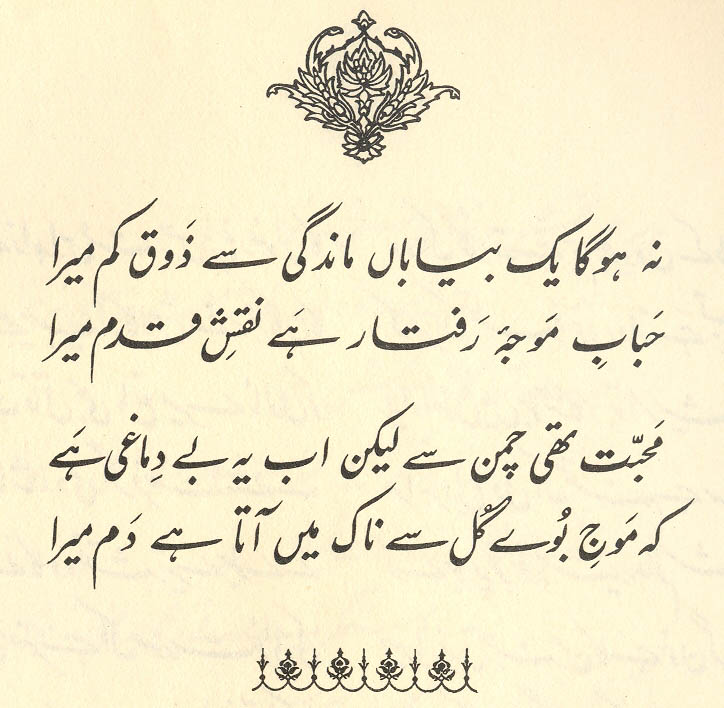 نہ ہوگا یک بیاباں ماندگی سے ذَوق کم میرا
حَبابِ مَوجۂ رَفتار ہَے نقشِ قدم میرا
مَحبّت تھی چمن سے لیکن اب یہ بے دِماغی ہَے
کہ مَوجِ بُوے گُل سے ناک میں آتا ہے دَم میرا